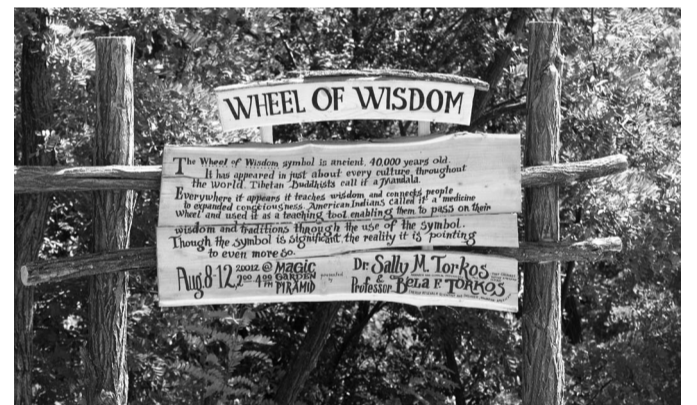 WHEEL OF WISDOM
The Wheel of Wisdom symbol is ancient, 40,000 years old.
It has appeared in just about every culture throughout
the world. Tibetan Buddhists call it a Mandala.
Everywhere it appears it teaches wisdom and connects people
to expanded consciousness. American Indians called it a medicine
wheel and used it as a teaching tool enabling them to pass on their
wisdom and traditions through the use of the symbol.
Though the symbol is significant, the reality it is pointing
to even more so.
Aug. 8-12, 2012 @ MAGIC GARDEN PIRAMID
2:00-4:00 PM
presented by
Dr. Sally M. Torkos
&
Professor Bela F. TORKOS